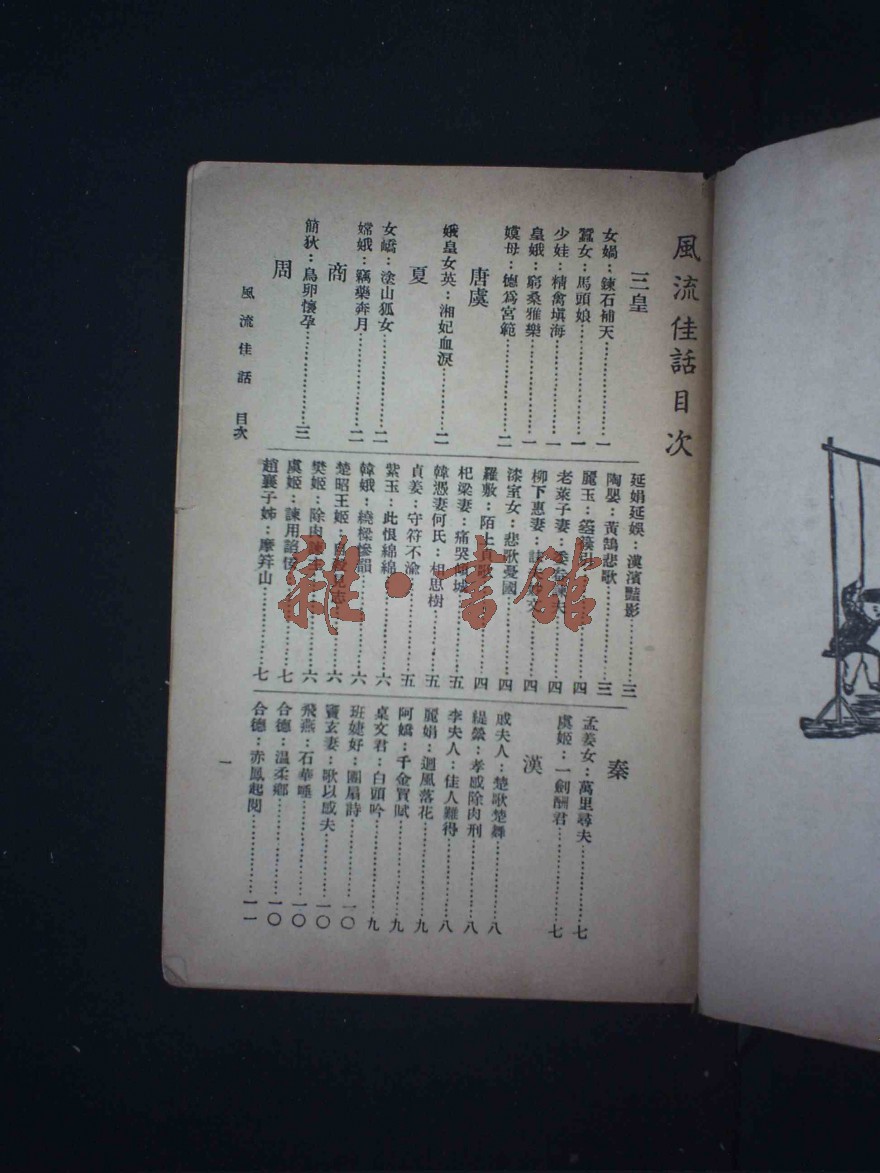 風流佳話目次
三皇
女媧：鍊石補天………一
蠶女：馬頭娘………一
少娃：精禽塡海………一
皇娥：窮桑雅樂………一
嫫母：德爲宮範………二
唐虞
娥皇女英：湘妃血淚………二
夏
女嶠：塗山狐女………二
嫦娥：竊藥奔月………二
商
簡狄：鳥卵懷孕………三
周
延娟延娛：漢濱豔影………三
陶嬰：黃鵠悲歌………三
麗玉：箜篌引………四
老萊子妻：委畚諫夫………四
柳下惠妻：誄夫………四
漆室女：悲歌憂國………四
羅敷：陌上………四
杞梁妻：痛哭傾城………五
韓憑妻何氏：相思樹………五
貞姜：守符不渝………五
紫玉：此恨綿綿………六
韓娥：繞樑慘韻………六
楚昭王姬：見志………六
樊姬：除肉諫………六
虞姬：諫用諂佞………七
趙襄子姊：摩笄山………七
秦
孟姜女：萬里尋夫………七
虞姬：一劍酬君………七
漢
戚夫人：楚歌楚舞………八
緹縈：孝感除肉刑………八
李夫人：佳人難得………八
麗娟：迴風落花………九
阿嬌：千金買賦………九
卓文君：白頭吟………九
班婕妤：團扇詩………一〇
竇玄妻：歌以感夫………一〇
飛燕：石華唾………一〇
合德：温柔鄉………一〇
合德：赤鳳起鬨………一一
風流佳話　目次
一
雜·書館